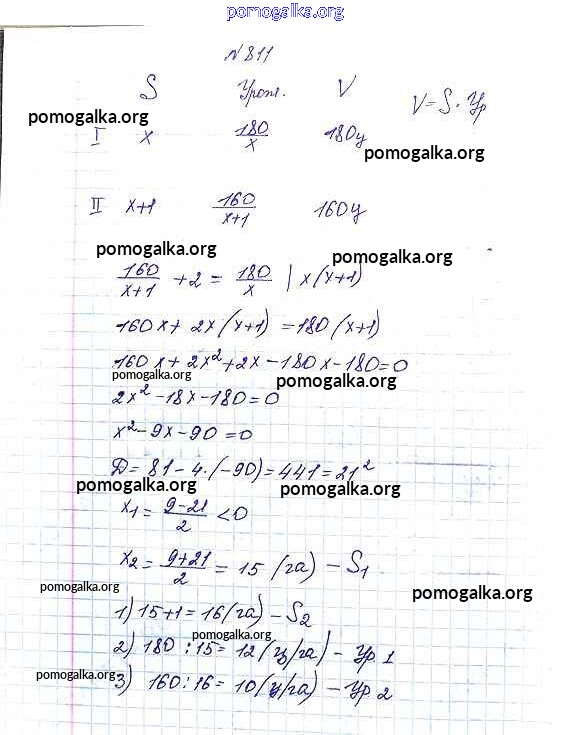 pomogalka.org
N 811
S Урож. V V = S · Ур
pomogalka.org
I x 180/x 180ц
pomogalka.org
II x+1 160/x+1 160ц
pomogalka.org pomogalka.org
160/x+1 + 2 = 180/x | x(x+1)
160x + 2x(x+1) = 180(x+1)
160x + 2x² + 2x - 180x - 180 = 0
pomogalka.org pomogalka.org
2x² - 18x - 180 = 0
x² - 9x - 90 = 0
D = 81 - 4·(-90) = 441 = 21²
pomogalka.org pomogalka.org
x₁ = 9-21/2 < 0
x₂ = 9+21/2 = 15 (га) - S₁
pomogalka.org pomogalka.org
1) 15+1 = 16 (га) - S₂
pomogalka.org
2) 180 : 15 = 12 (ц/га) - Ур 1
pomogalka.org
3) 160 : 16 = 10 (ц/га) - Ур 2